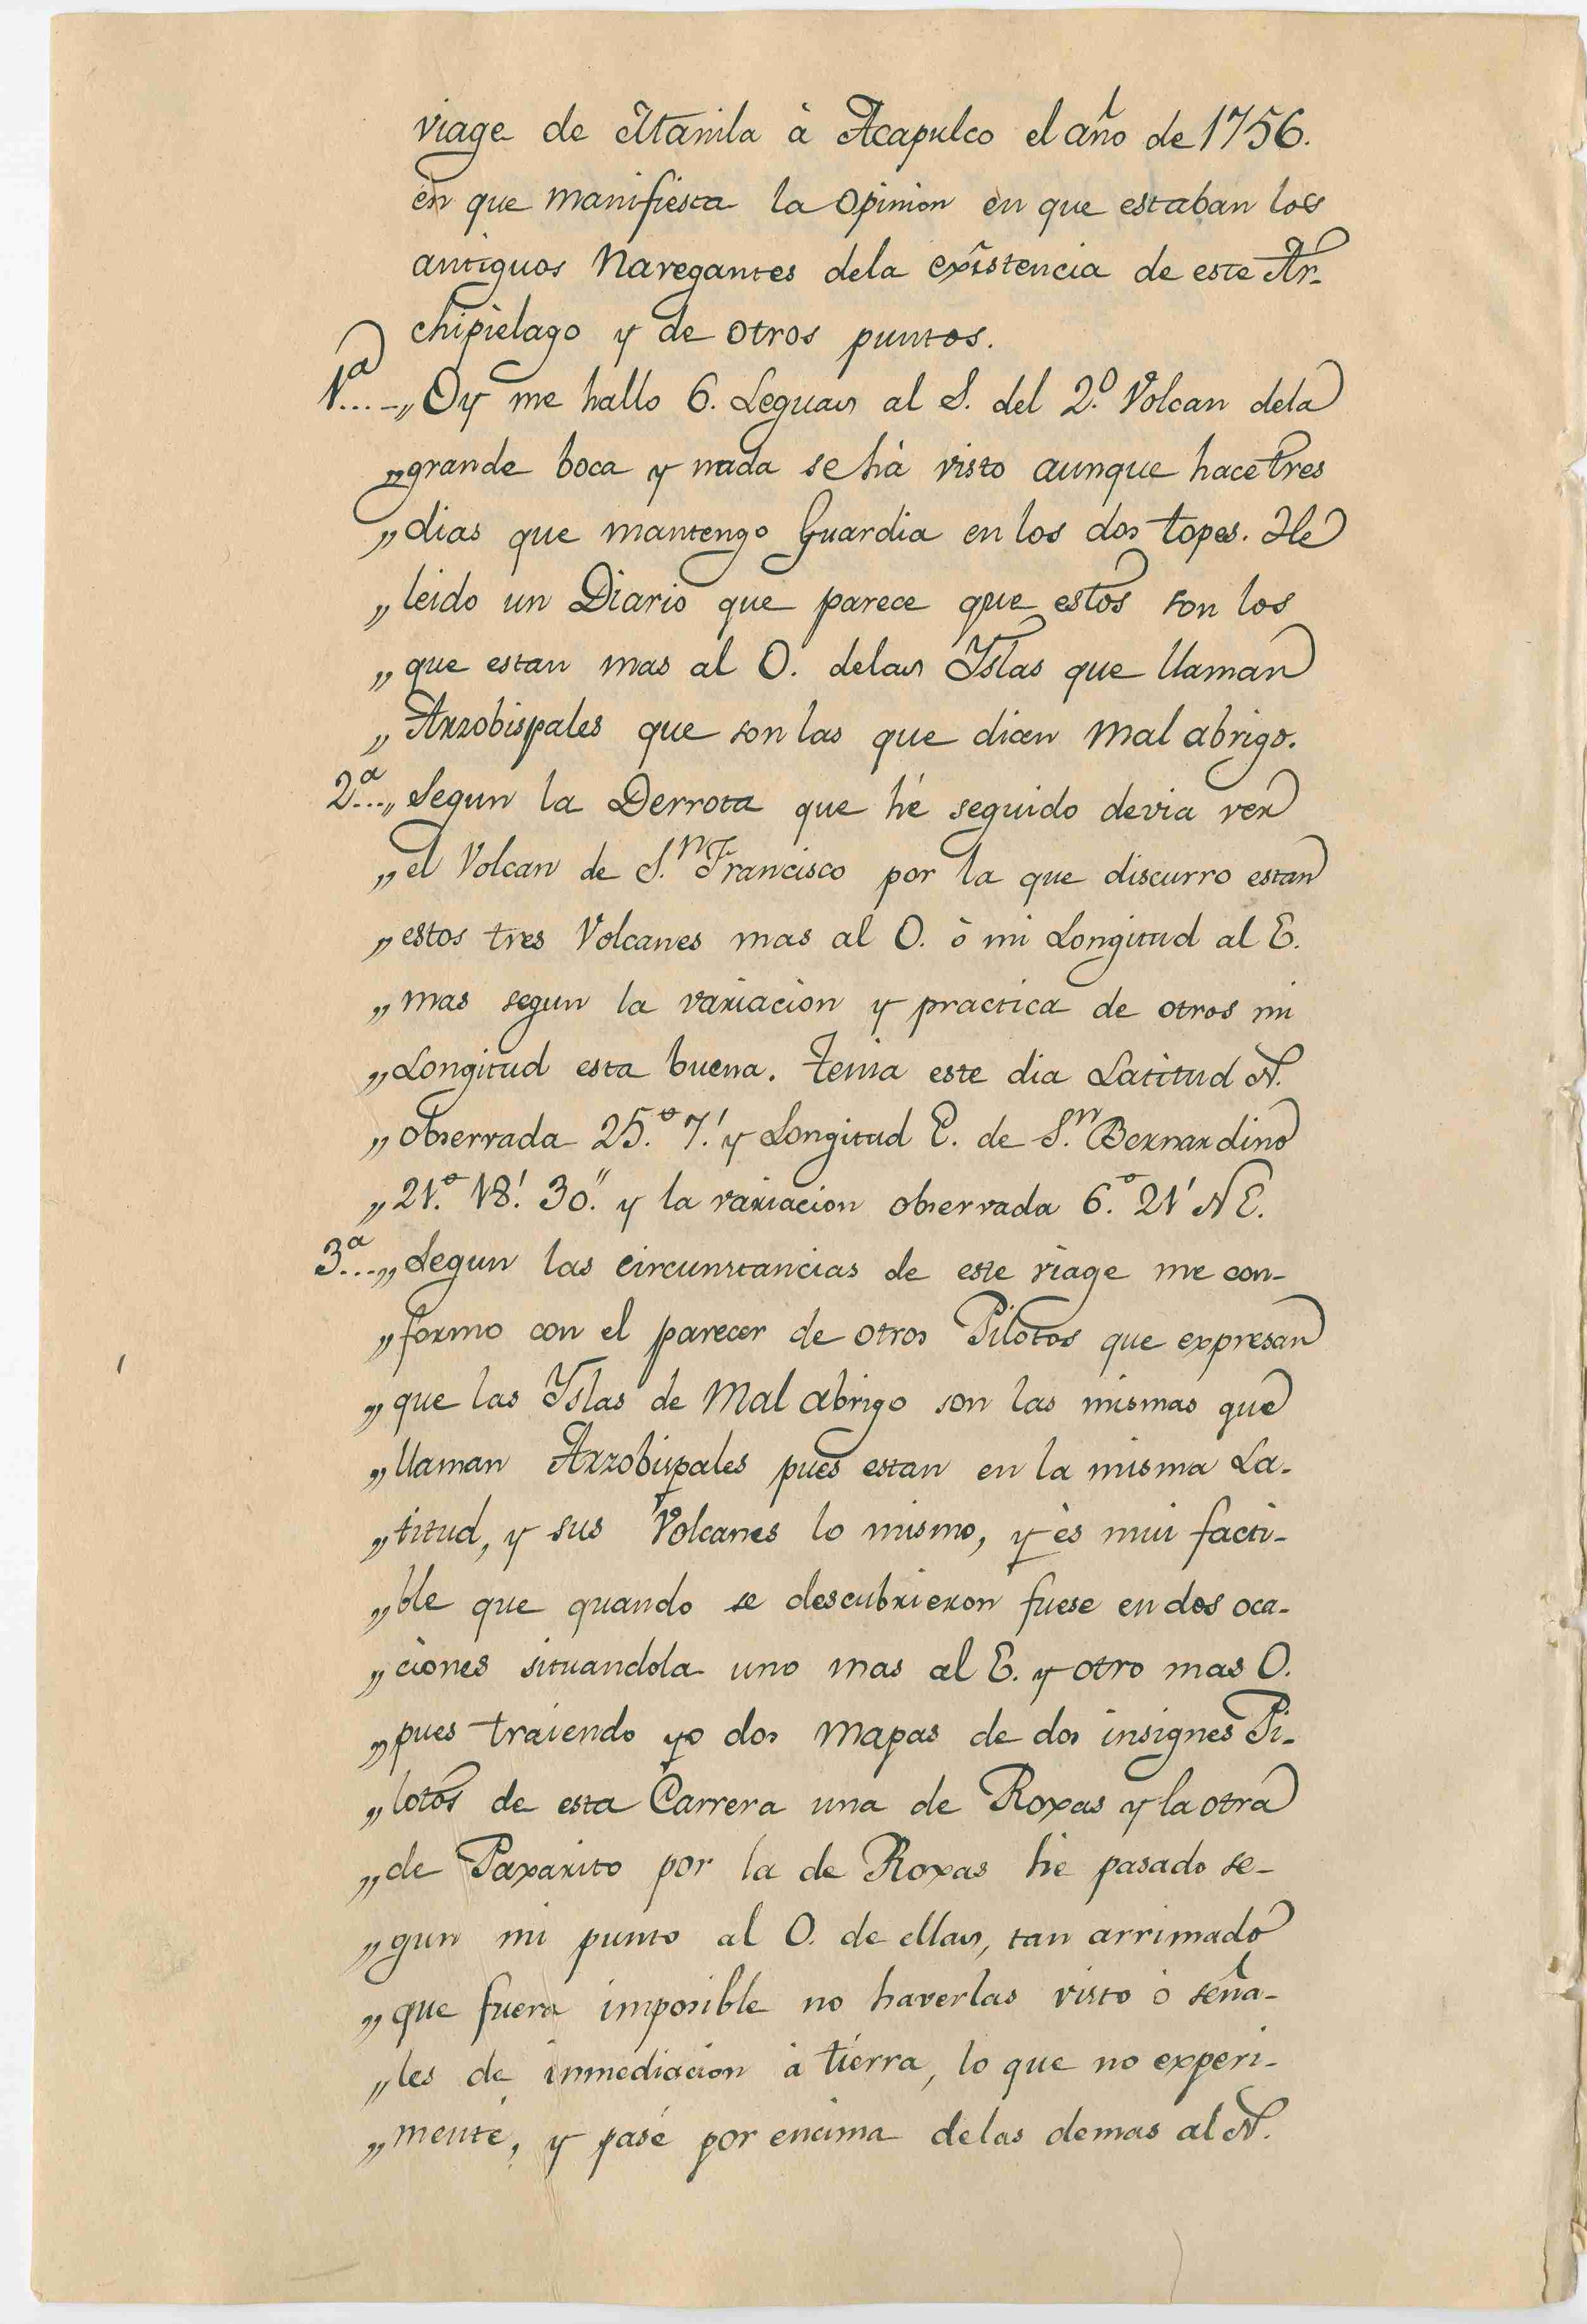 viage de Manila à Acapulco el año de 1756.
en que manifiesta la opinion en que estaban los
antiguos Navegantes dela existencia de este Ar-
chipièlago y de otros puntos.
1ª...-„ Oy me hallo 6. Leguas al S. del 2.º Volcan dela
„ grande boca y nada se hà visto aunque hace tres
„ dias que mantengo Guardia en los dos topes. He
„ leido un Diario que parece que estos son los
„ que estan mas al O. delas Yslas que llaman
„ Arzobispales que son las que dicen Mal abrigo.
2ª...„ Segun la Derrota que hé seguido devia ver
„ el Volcan de S.ⁿ Francisco por la que discurro estan
„ estos tres Volcanes mas al O. ò mi Longitud al E.
„ mas segun la variaciòn y practica de otros mi
„ Longitud esta buena. Tenia este dia Latitud N.
„ observada 25.º 7.' y Longitud E. de S.ⁿ Bernardino
„ 21.º 18.' 30." y la variacion observada 6.º 21' NE.
3ª...„ Segun las circunstancias de este viage me con-
„ formo con el parecer de otros Pilotos que expresan
„ que las Yslas de Mal abrigo son las mismas que
„ llaman Arzobispales pues estan en la misma La-
„ titud, y sus Volcanes lo mismo, y ès mui facti-
„ ble que quando se descubrieron fuese en dos oca-
„ ciones situandola uno mas al E. y otro mas O.
„ pues traiendo yo dos Mapas de dos insignes Pi-
„ lotos de esta Carrera una de Roxas y la otra
„ de Paxarito por la de Roxas hè pasado se-
„ gun mi punto al O. de ellas, tan arrimado
„ que fuera imposible no haverlas visto ò seña-
„ les de inmediacion à tierra, lo que no experi-
„ menté, y pasé por encima delas demas al N.